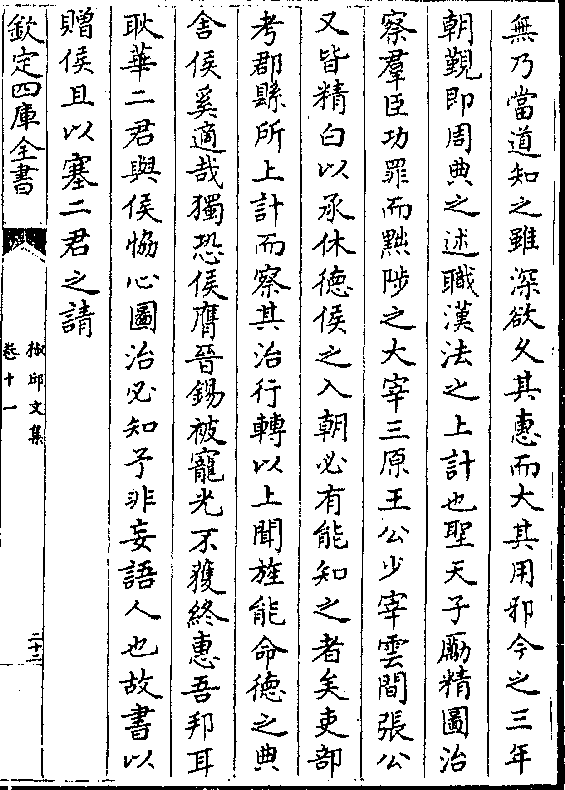 無乃當道知之雖深欲久其惠而大其用邪今之三年
朝覲即周典之述職漢法之上計也聖天子勵精圖治
察羣臣功罪而黜陟之大宰三原王公少宰雲間張公
又皆精白以承休德侯之入朝必有能知之者矣吏部
考郡縣所上計而察其治行轉以上聞旌能命德之典
舍侯奚適哉獨恐侯膺晉錫被寵光不獲終惠吾邦耳
耿華二君與侯恊心圖治必知予非妄語人也故書以
贈侯且以塞二君之請
欽定四庫全書
椒邱文集
卷十一
二十二